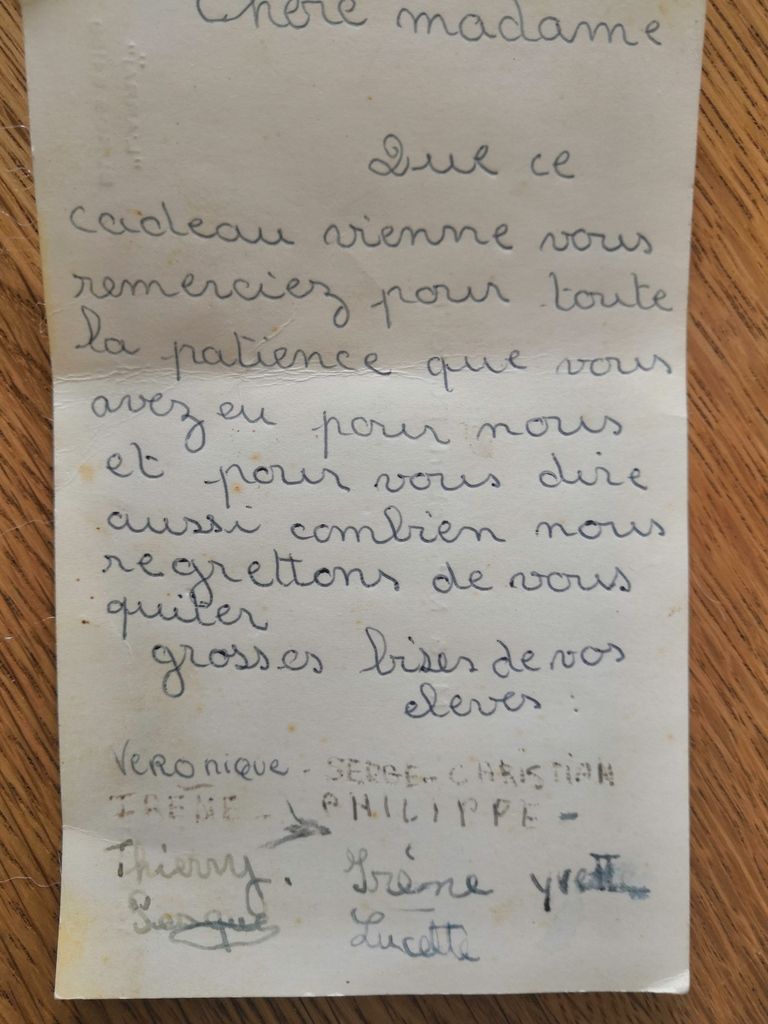 Chère madame
Que ce
cadeau vienne vous
remerciez pour toute
la patience que vous
avez eu pour nous
et pour vous dire
aussi combien nous
regrettons de vous
quiter
grosses bises de vos
eleves :
Veronique - SERGE - CHRISTIAN
IRENE - PHILIPPE -
Thierry. Irène yvette
Lucette